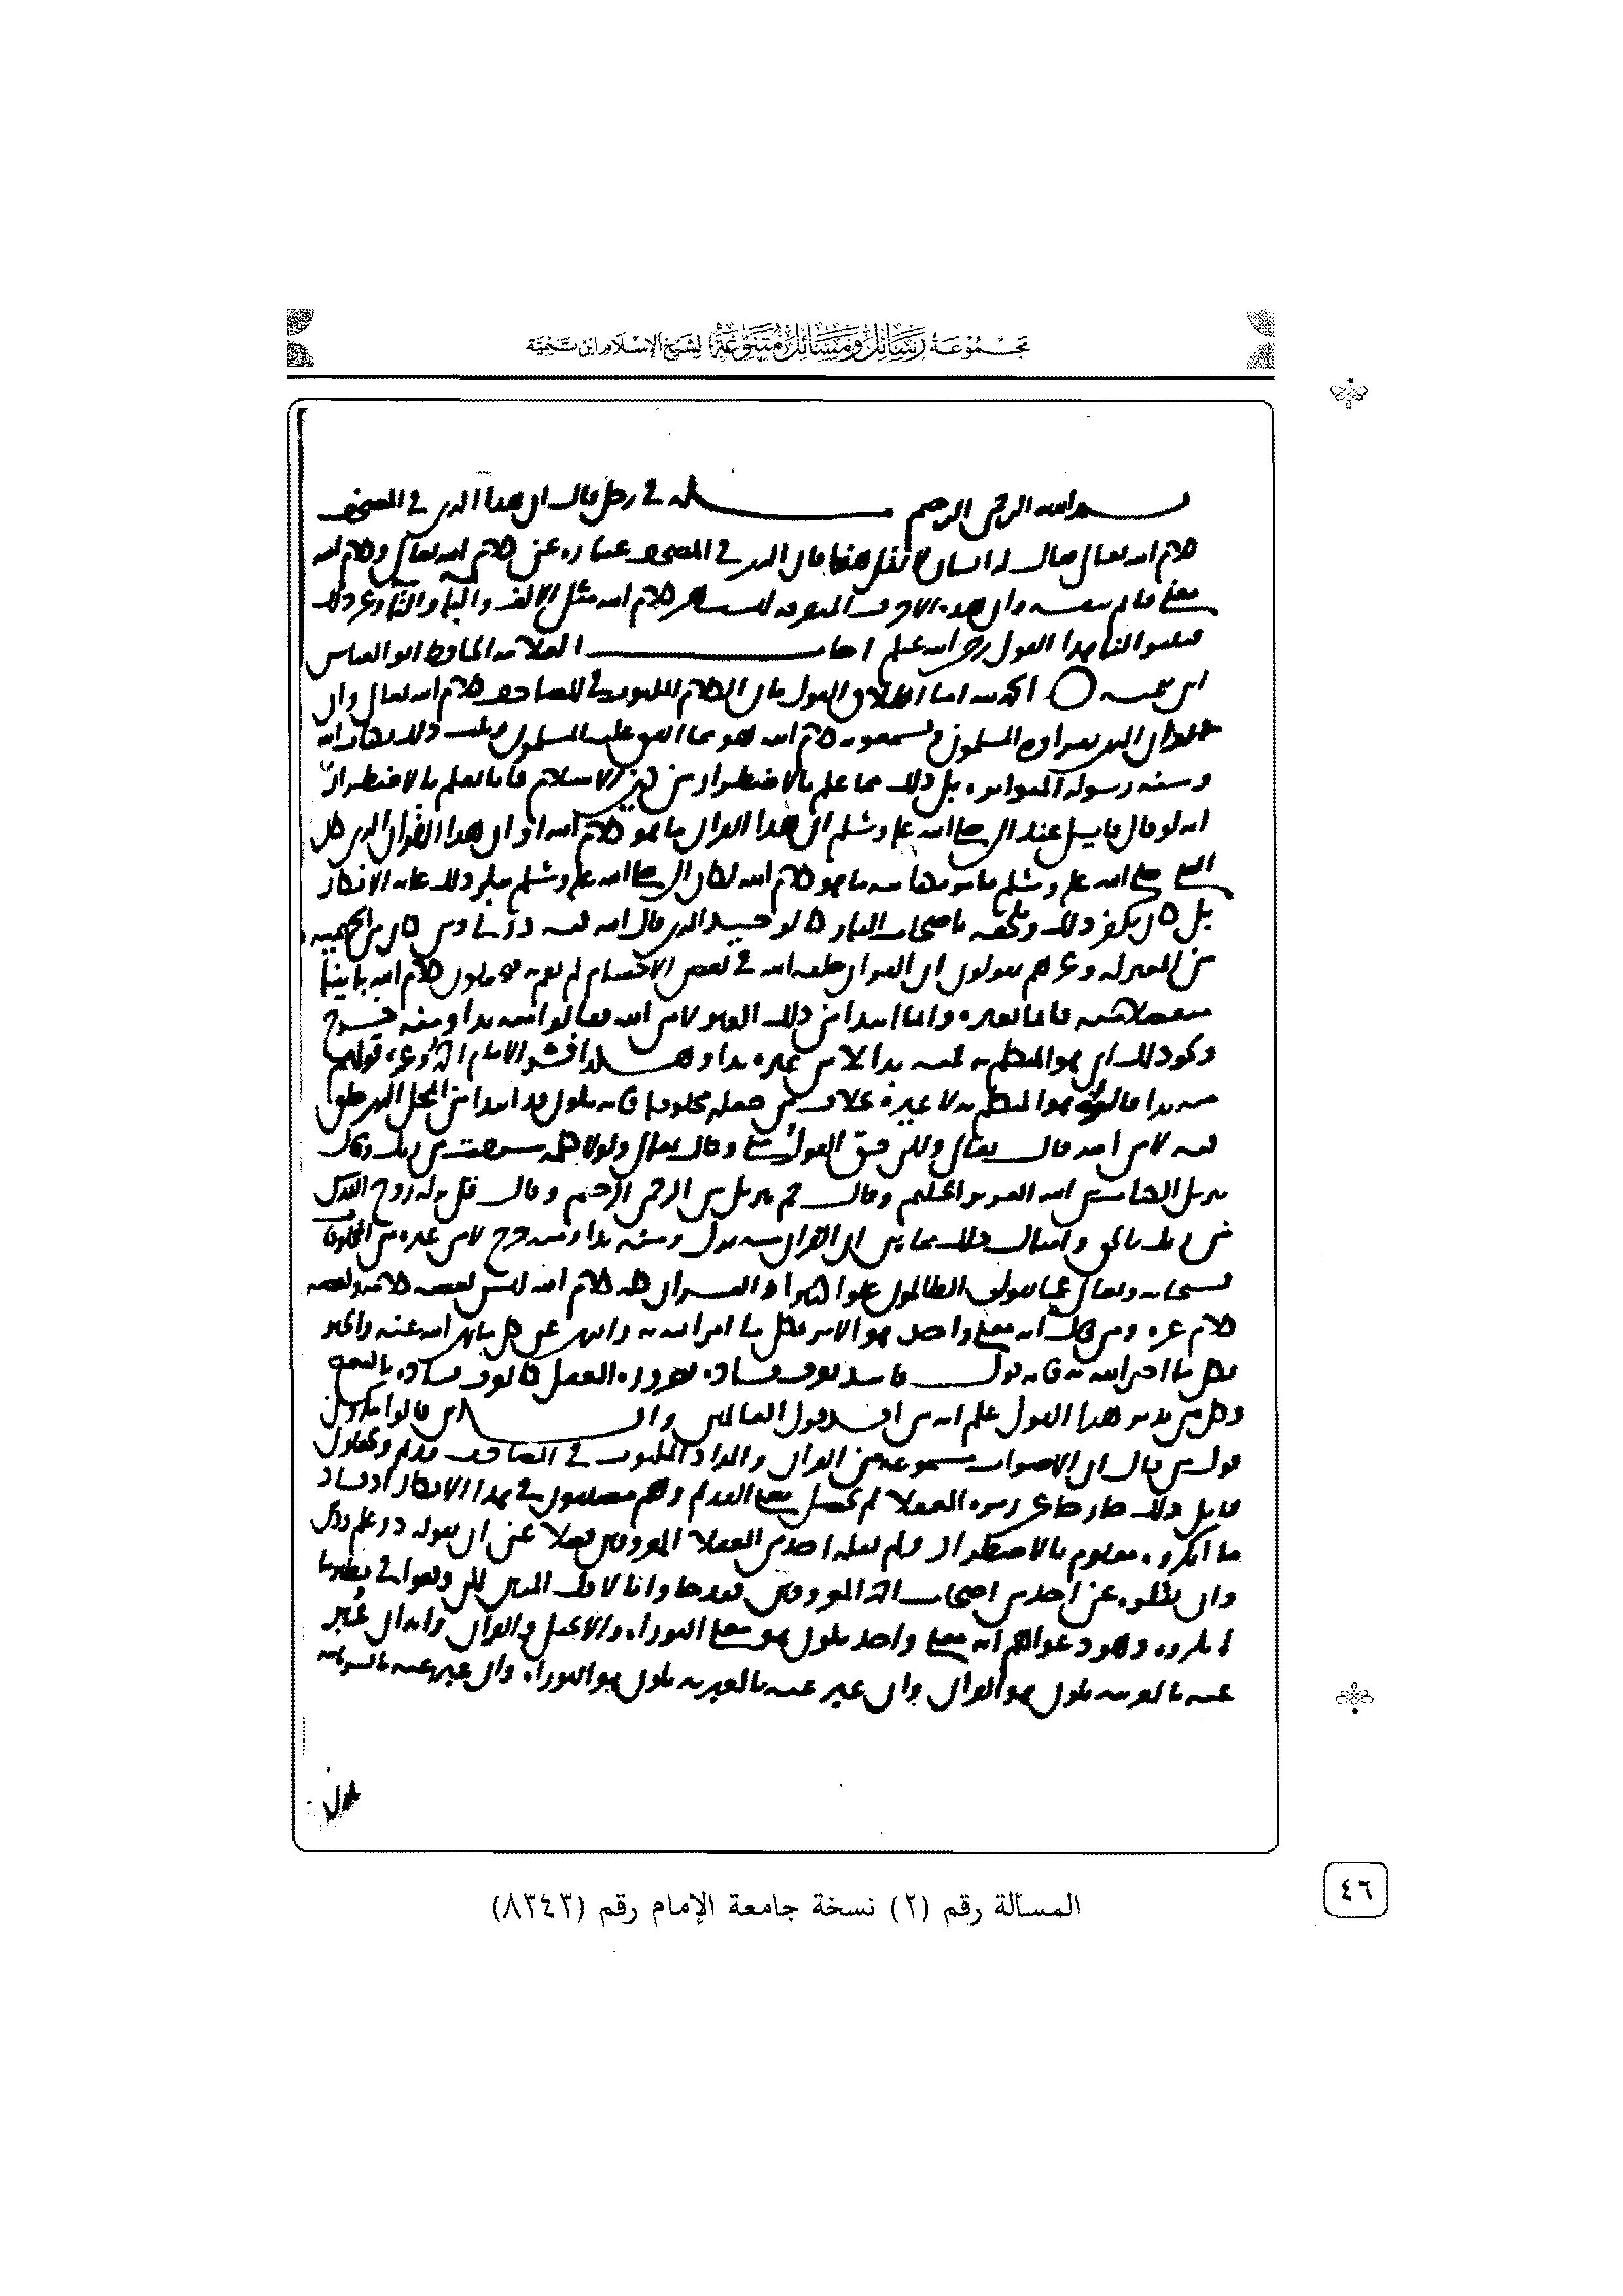 مجموعة رسائل ومسائل متنوعة لشيخ الإسلام ابن تيمية
بسم الله الرحمن الرحيم مسـله في رجل قال ان هذا الذي في المصحف
كلام الله تعالى فقال له انسان لا تقل هذا فان الذي في المصحف عباره عن كلام الله تعالى وكلام الله
معنى قائم بنفسه وان هذه الاحرف المعروفه ليست هي كلام الله مثل الالف والبا والتا وغير ذلك
لنا بهذا القول رحمة الله عليكم اجاب العلامه الحافظ ابو العباس
ابن تيميه الحمد لله اما اطلاق القول بان الكلام المكتوب في المصاحف كلام الله تعالى وان
القران الذي يقراوه المسلمون ويسمعونه كلام الله فهو مما اتفق عليه المسلمون وثبت ذلك بكتاب الله
وسنه رسوله المتواتره بل ذلك مما علم بالاضطرار من دين الاسلام فانا نعلم بالاضطرار
انه لو قال قايل عند النبي صلى الله عليه وسلم ان هذا القران ما هو كلام الله او ان هذا القران الذي
النبي صلى الله عليه وسلم ما هو كلام الله لكان النبي صلى الله عليه وسلم ينكر ذلك غايه الانكار
بل كان يكفر ذلك ويلحقه باصحاب النار كالوحيد الذي قال الله فيه ذرني ومن كان من الجهميه
من المعتزله وغيرهم يقولون ان القران خلقه الله في بعض الاجسام لم يقم به فيجعلون كلام الله باينا
منفصلا عنه قايما بغيره وانما ابتدا من ذلك الغير لا من الله فقالوا منه بدا ومنه خرج
ونحو ذلك اي هو المتكلم به فمنه بدا لا من غيره بدا وهكذا فسر الامام احمد وغيره قولهم
منه بدا قالوا هو المتكلم به لا غيره خلاف من جعله مخلوقا فانه يكون قد ابتدا من المحل الذي خلق
فيه لا من الله قال تعالى ولكن حق القول مني وقال تعالى ولولا كلمه سبقت من ربك وقال
تنزيل الكتاب من الله العزيز الحكيم وقال حم تنزيل من الرحمن الرحيم وقال قل نزله روح القدس
من ربك بالحق وامثال ذلك مما يبين ان القران منه نزل ومنه بدا ومنه خرج لا من غيره من المخلوقات
سبحانه وتعالى عما يقول الظالمون علوا كبيرا والقران كله كلام الله ليس بعضه كلامه وبعضه
كلام غيره ومن قال انه معنى واحد هو الامر بكل ما امر الله به والنهي عن كل ما نهى الله عنه والخبر
بكل ما اخبر الله به فانه قول فاسد يعرف فساده بضروره العقل كما يعرف فساده بالسمع
وكل من تدبر هذا القول علم انه من افسد قول العالمين
قول من قال ان الاصوات مسموعه من القران والمداد المكتوب في المصاحف قديم
قايل ذلك خارجا عن زمره العقلا لم يحصل معنى القديم وهم مصيبون في هذا الانكار اذ فساد
ما انكروه معلوم بالاضطرار ولم يقله احد من العقلا المعروفين فضلا عن ان يقوله ذو علم ودين
وان نقلوه عن احد من اصحاب الائمه المعروفين
انكروه وهو دعواهم انه معنى واحد يكون هو معنى التوراه والانجيل والقران وانه ان عبر
عنه بالعربيه يكون هو القران وان عبر عنه بالعبريه يكون هو التوراه وان عبر عنه بالسريانيه
يكون
المسألة رقم (٢) نسخة جامعة الإمام رقم (٨٣٤٣)
٤٦